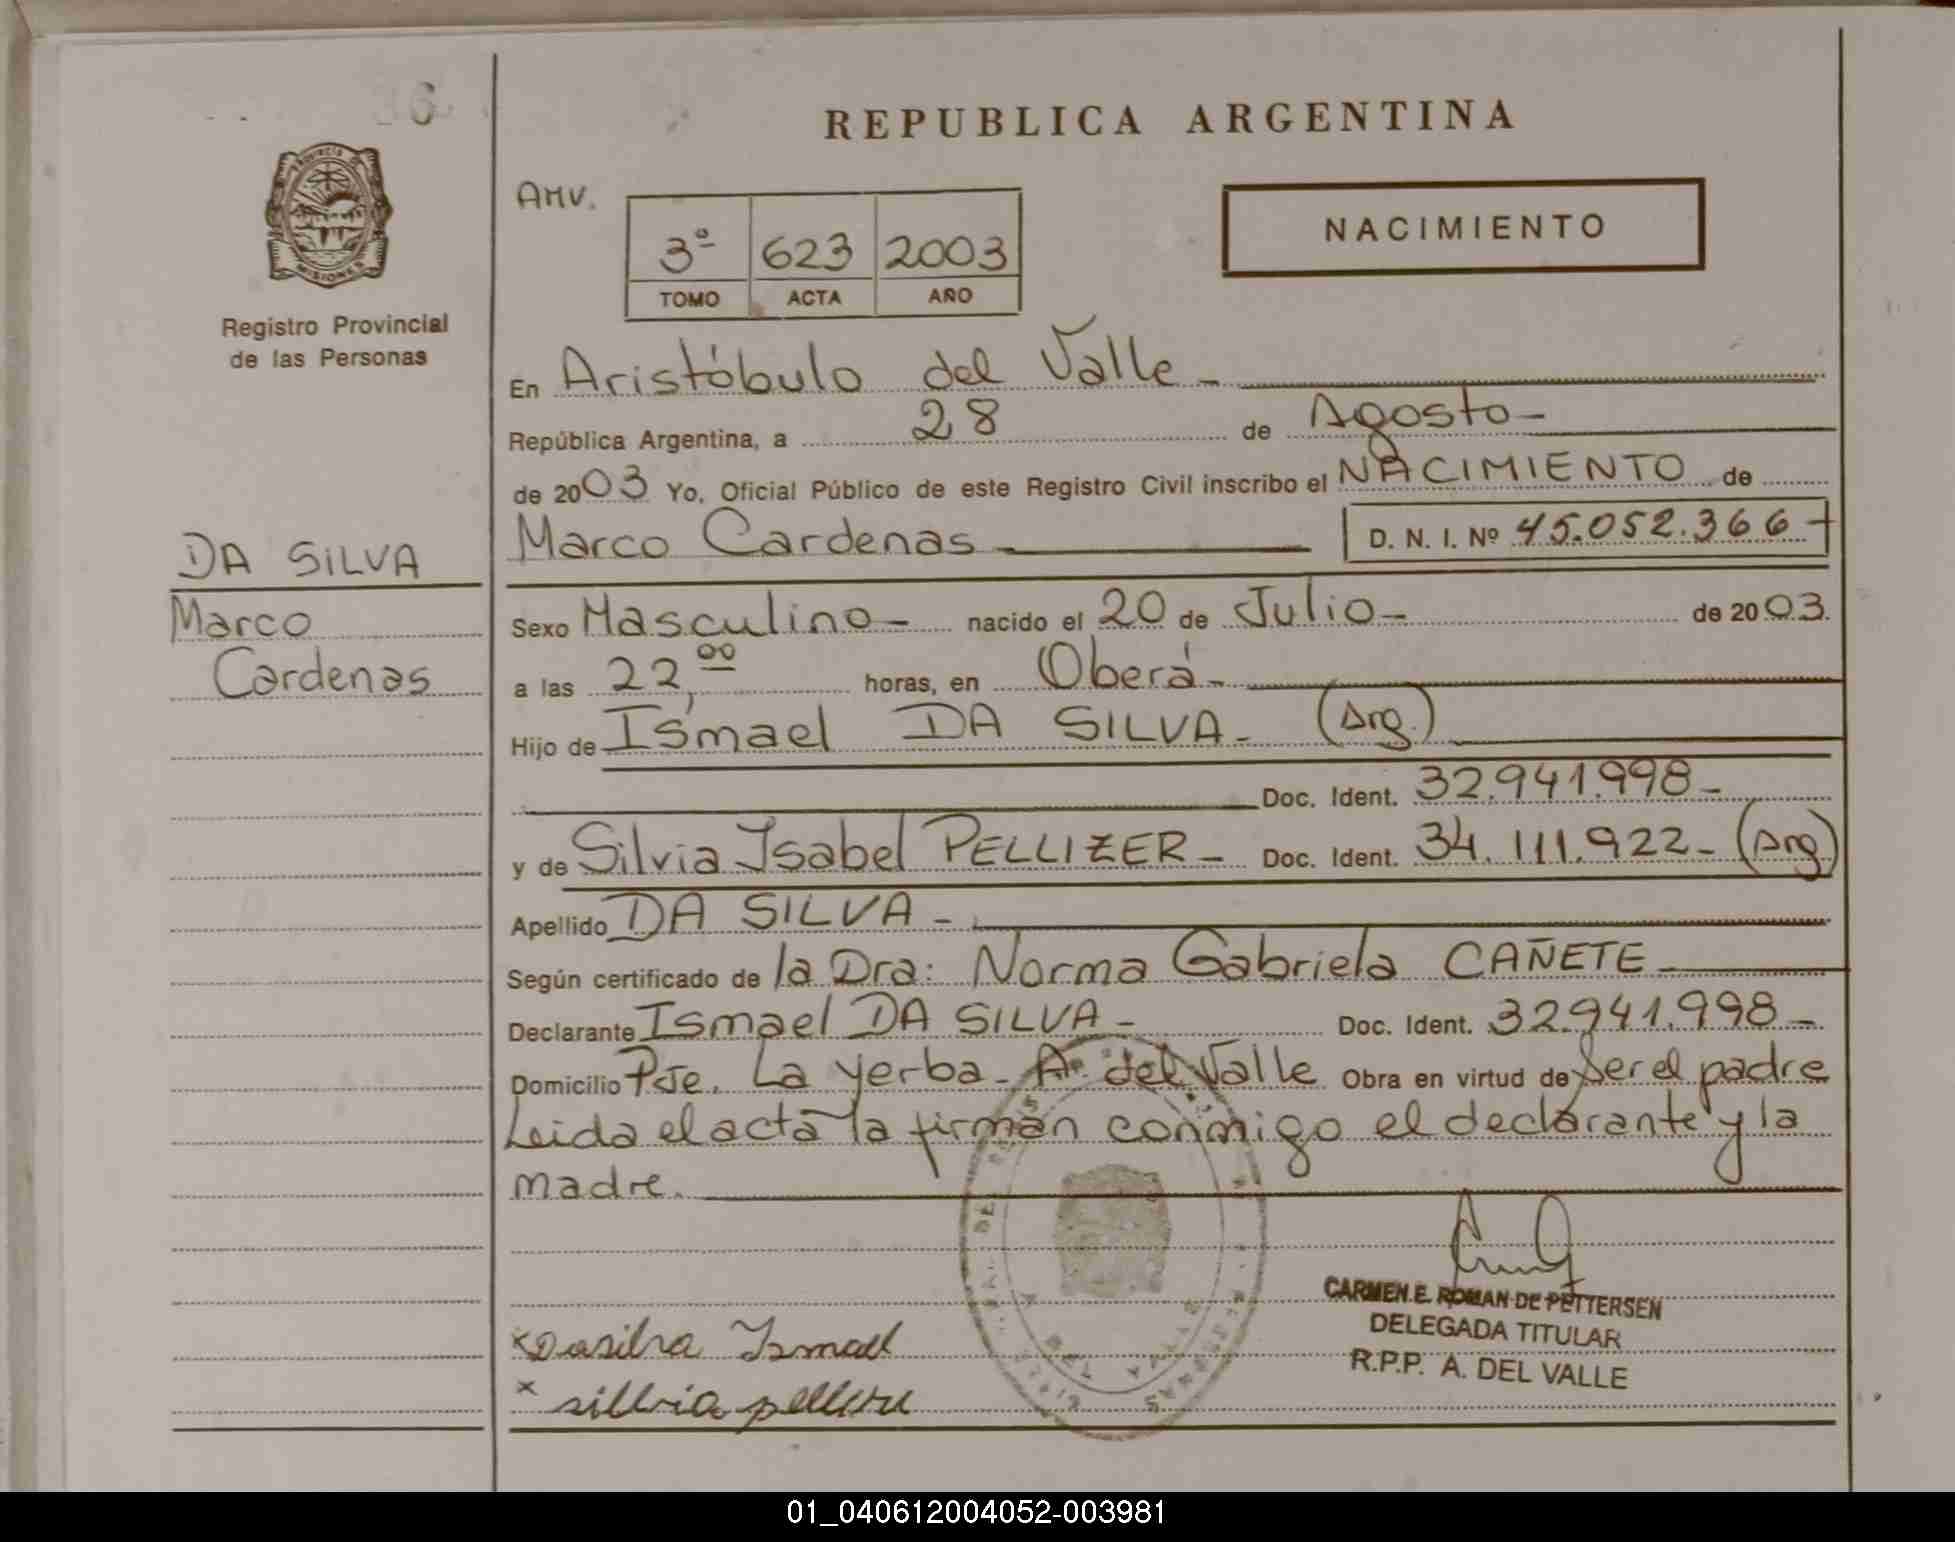 6
REPUBLICA ARGENTINA
PROVINCIA DE
MISIONES
Registro Provincial
de las Personas
AMV.
3º 623 2003
TOMO ACTA AÑO
NACIMIENTO
En Aristóbulo del Valle -
República Argentina, a 28 de Agosto -
de 2003 Yo, Oficial Público de este Registro Civil inscribo el NACIMIENTO de
Marco Cardenas D. N. I. Nº 45.052.366
DA SILVA
Marco
Cardenas
Sexo Masculino - nacido el 20 de Julio - de 2003.
a las 22,00 horas, en Oberá -
Hijo de Ismael DA SILVA - (Arg.)
Doc. Ident. 32.941.998 -
y de Silvia Isabel PELLIZER - Doc. Ident. 34.111.922 - (Arg)
Apellido DA SILVA -
Según certificado de la Dra: Norma Gabriela CAÑETE -
Declarante Ismael DA SILVA - Doc. Ident. 32.941.998 -
Domicilio Pje. La yerba - A. del Valle Obra en virtud de Ser el padre
Leida el acta la firman conmigo el declarante y la
madre.
CARMEN E. ROMAN DE PETTERSEN
DELEGADA TITULAR
R.P.P. A. DEL VALLE
x Dasilva Ismael
x sillvia
01_040612004052-003981